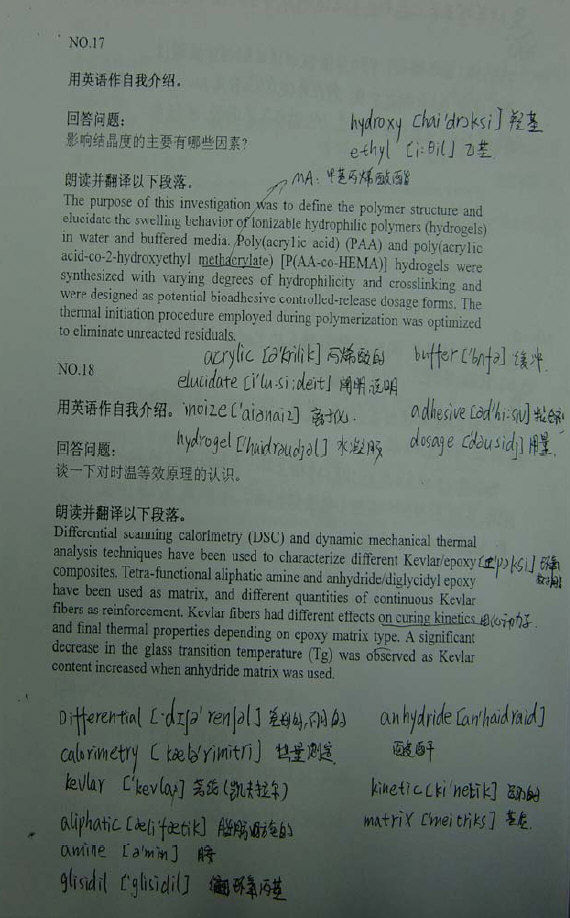 NO.17
用英语作自我介绍。
回答问题：
影响结晶度的主要有哪些因素?
hydroxy [hai'drɔksi] 羟基
ethyl [i:θil] 乙基
朗读并翻译以下段落。
MA: 甲基丙烯酸酯
The purpose of this investigation was to define the polymer structure and
elucidate the swelling behavior of ionizable hydrophilic polymers (hydrogels)
in water and buffered media. Poly(acrylic acid) (PAA) and poly(acrylic
acid-co-2-hydroxyethyl methacrylate) [P(AA-co-HEMA)] hydrogels were
synthesized with varying degrees of hydrophilicity and crosslinking and
were designed as potential bioadhesive controlled-release dosage forms. The
thermal initiation procedure employed during polymerization was optimized
to eliminate unreacted residuals.
acrylic [ə'krilik] 丙烯酸的 buffer ['bʌfə] 缓冲
NO.18
elucidate [i'lu:si:deit] 阐明,说明
用英语作自我介绍。
inoize ['aiənaiz] 离子化 adhesive [əd'hi:siv]
hydrogel ['haidrəudʒəl] 水凝胶 dosage ['dəusidʒ] 用量
回答问题：
谈一下对时温等效原理的认识。
朗读并翻译以下段落。
Differential scanning calorimetry (DSC) and dynamic mechanical thermal
analysis techniques have been used to characterize different Kevlar/epoxy
composites. Tetra-functional aliphatic amine and anhydride/diglycidyl epoxy
have been used as matrix, and different quantities of continuous Kevlar
fibers as reinforcement. Kevlar fibers had different effects on curing kinetics
and final thermal properties depending on epoxy matrix type. A significant
decrease in the glass transition temperature (Tg) was observed as Kevlar
content increased when anhydride matrix was used.
Differential [,dɪfə'renʃəl] 差别的,不同的 anhydride [an'haidraid]
calorimetry [kælə'rimitri] 热量测定 酸酐
kevlar ['kevlɑ:] 芳纶(凯夫拉尔) kinetic [ki'netik] 运动的
aliphatic [æli'fætik] 脂肪族的 matrix [meitriks] 基质
amine [ə'min] 胺
glisidil ['glisidil] 环氧丙基